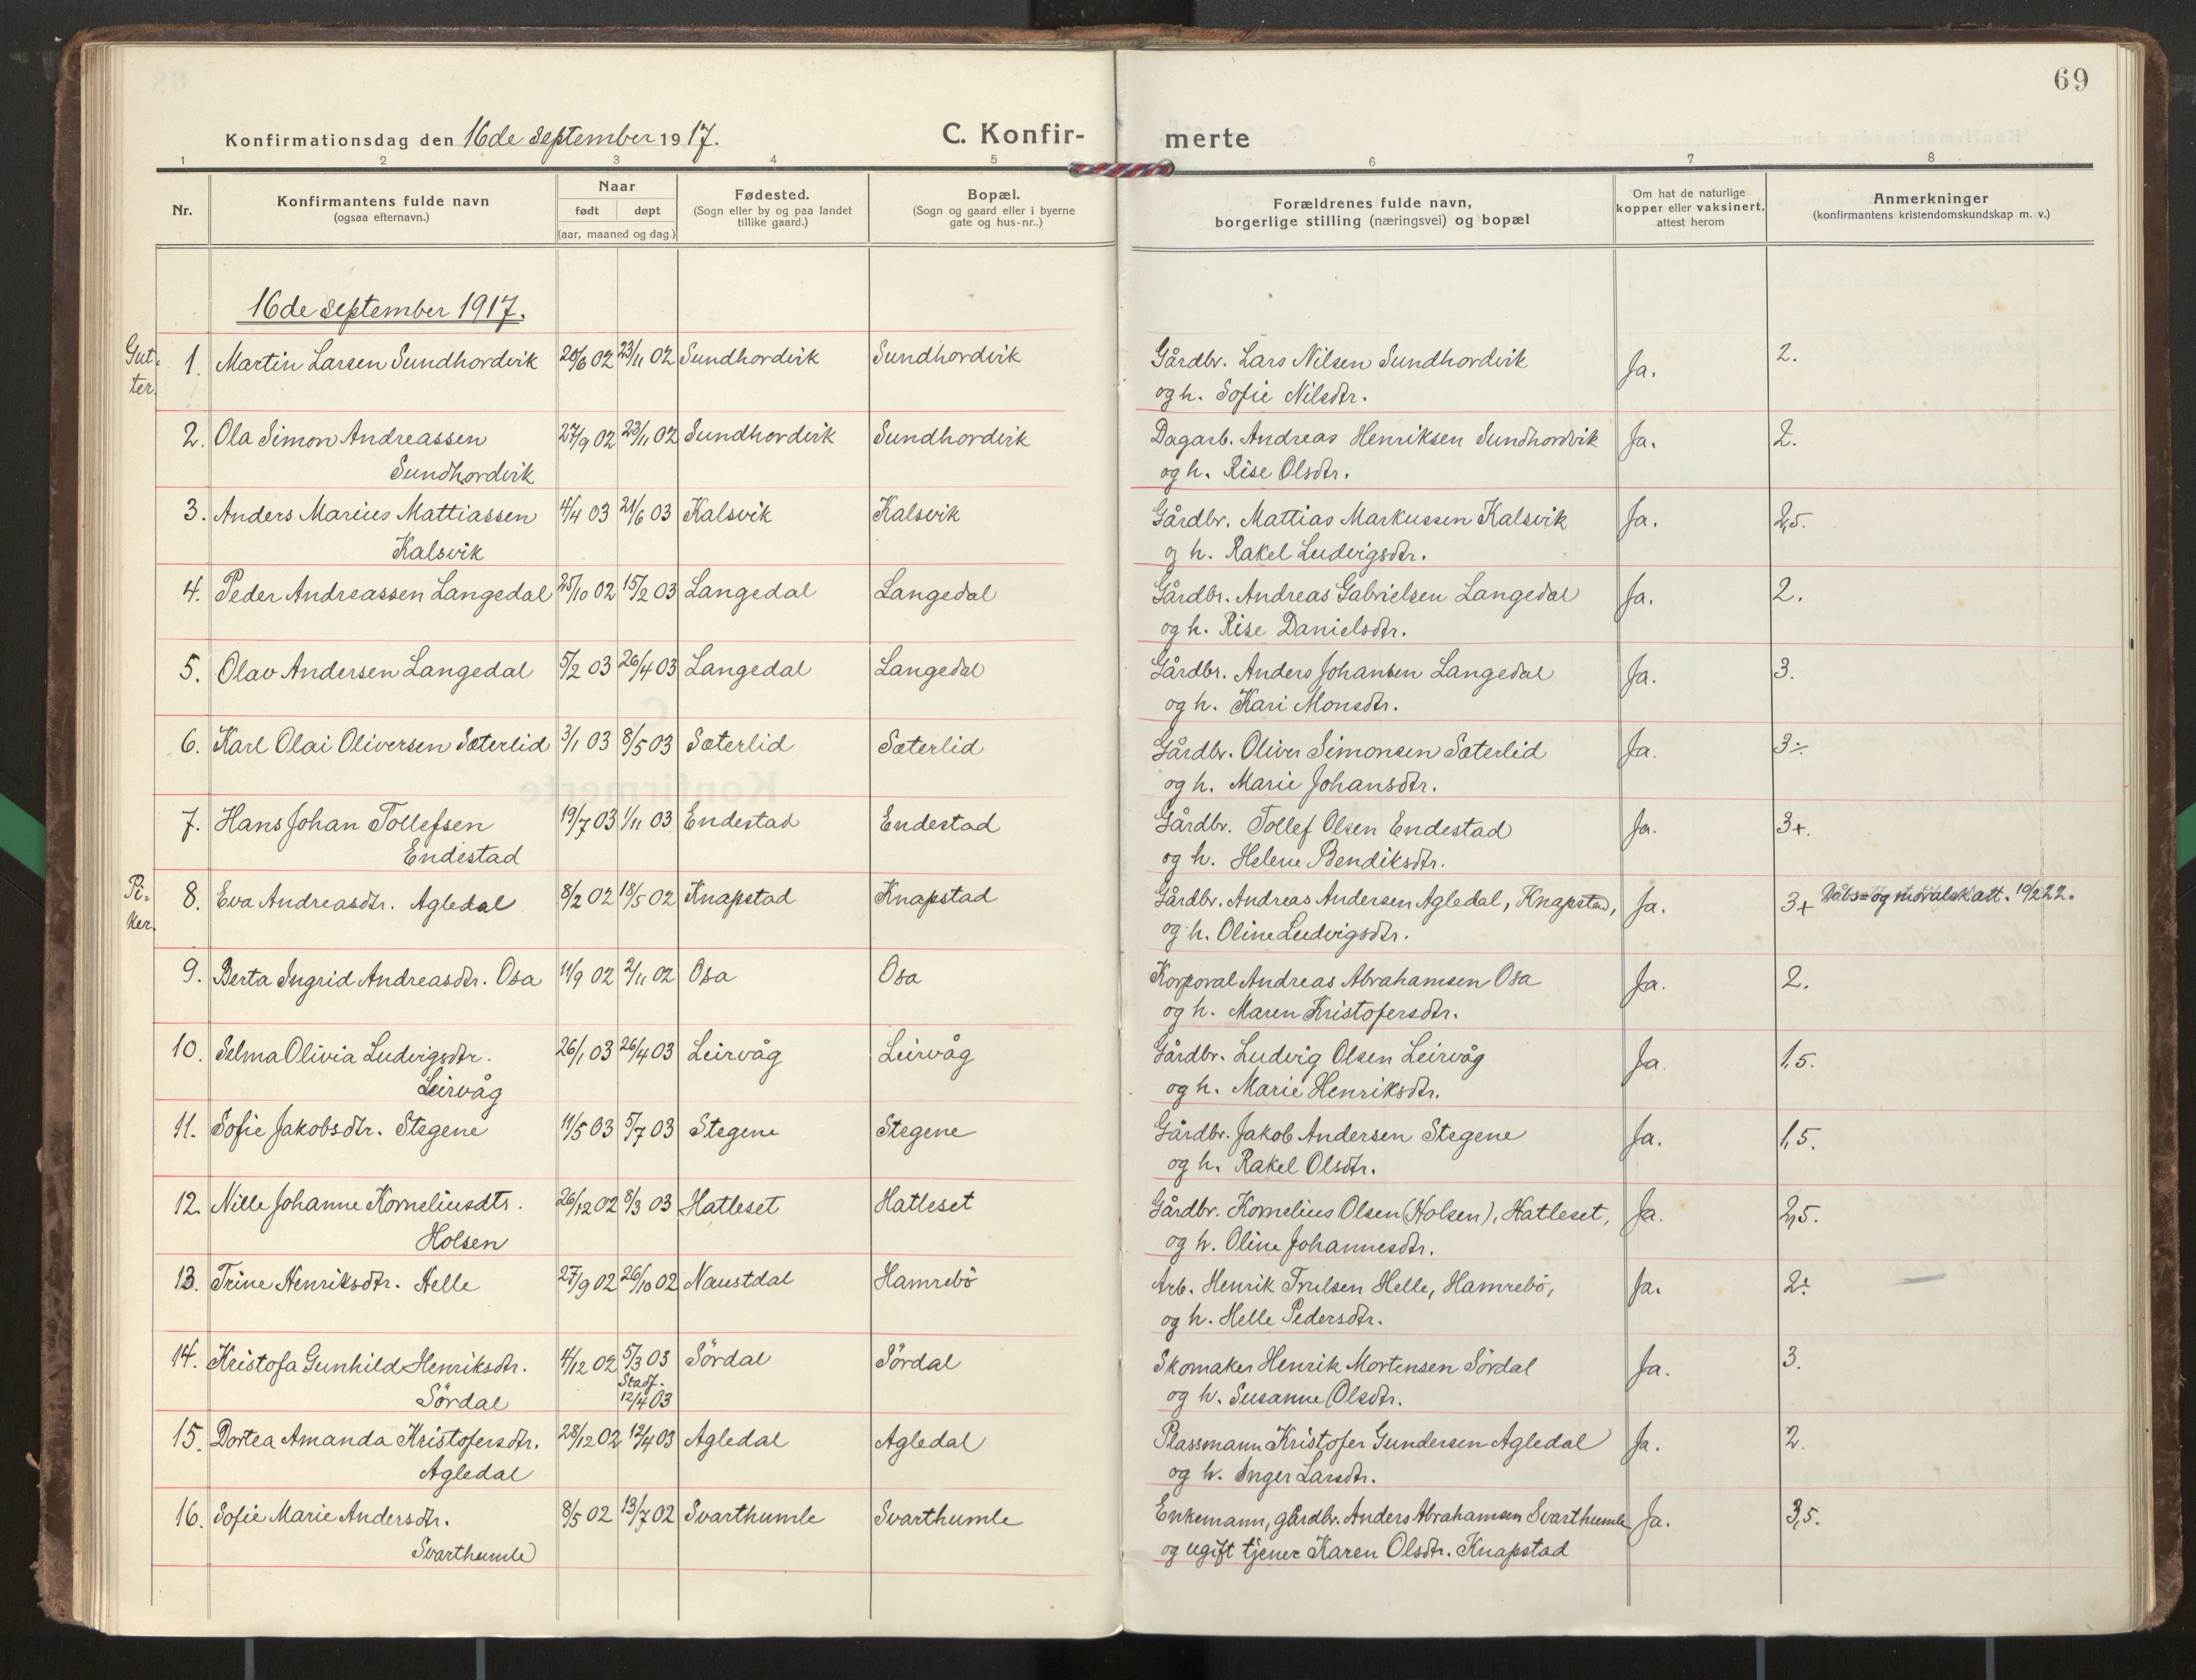 69
Konfirmationsdag den 16de september 1917.
C. Konfir-merte
1 2 3 4 5 6 7 8
Nr.
Konfirmantens fulde navn
(ogsaa efternavn.)
Naar
født døpt
(aar, maaned og dag.)
Fødested.
(Sogn eller by og paa landet
tillike gaard.)
Bopæl.
(Sogn og gaard eller i byerne
gate og hus-nr..)
Forældrenes fulde navn,
borgerlige stilling (næringsvei) og bopæl
Om hat de naturlige
kopper eller vaksinert,
attest herom
Anmerkninger
(konfirmantens kristendomskundskap m. v.)
16de september 1917.
Gut-
ter.
1. Martin Larsen Sundhordvik 23/11 02 Sundhordvik Sundhordvik Gårdbr. Lars Nilsen Sundhordvik Ja. 2.
og h. Sofie Nilsdtr.
2. Ola Simon Andreassen 27/9 02 23/11 02 Sundhordvik Sundhordvik Dagarb. Andreas Henriksen Sundhordvik Ja. 2.
Sundhordvik og h. Rise Olsdtr.
3. Anders Marius Mattiassen 4/4 03 21/6 03 Kalsvik Kalsvik Gårdbr. Mattias Markussen Kalsvik Ja. 2,5.
Kalsvik og h. Rakel Ludvigsdtr.
4. Peder Andreassen Langedal 25/10 02 15/2 03 Langedal Langedal Gårdbr. Andreas Gabrielsen Langedal Ja. 2.
og h. Rise Danielsdtr.
5. Olav Andersen Langedal 5/2 03 26/4 03 Langedal Langedal Gårdbr. Anders Johansen Langedal Ja. 3.
og h. Kari Monsdtr.
6. Karl Olai Oliversen Sæterlid 3/1 03 8/5 03 Sæterlid Sæterlid Gårdbr. Oliver Simonsen Sæterlid Ja. 3÷
og h. Marie Johansdtr.
7. Hans Johan Tollefsen 19/7 03 1/11 03 Endestad Endestad Gårdbr. Tollef Olsen Endestad Ja. 3+.
Endestad og h. Helene Bendiksdtr.
Pi-
ker.
8. Eva Andreasdtr. Agledal 8/2 02 18/5 02 Knapstad Knapstad Gårdbr. Andreas Andersen Agledal, Knapstad, Ja. 3+ Dåbs= og moralsk att. 10/2 22.
og h. Oline Ludvigsdtr.
9. Berta Ingrid Andreasdtr. Osa 11/9 02 2/11 02 Osa Osa Korporal Andreas Abrahamsen Osa Ja. 2.
og h. Maren Kristofersdtr.
10. Selma Olivia Ludvigsdtr. 26/1 03 26/4 03 Leirvåg Leirvåg Gårdbr. Ludvig Olsen Leirvåg Ja. 1,5.
Leirvåg og h. Marie Henriksdtr.
11. Sofie Jakobsdtr. Stegene 11/5 03 5/7 03 Stegene Stegene Gårdbr. Jakob Andersen Stegene Ja. 1,5.
og h. Rakel Olsdtr.
12. Nille Johanne Korneliusdtr. 26/12 02 8/3 03 Hatleset Hatleset Gårdbr. Kornelius Olsen (Holsen), Hatleset, Ja. 2,5.
Holsen og h. Oline Johannesdtr.
13. Trine Henriksdtr. Helle 27/9 02 26/10 02 Naustdal Hamrebö Arb. Henrik Trulsen Helle, Hamrebö, Ja. 2÷
og h. Helle Pedersdtr.
14. Kristofa Gunhild Henriksdtr. 4/12 02 5/3 03 Sördal Sördal Skomaker Henrik Mortensen Sördal Ja. 3.
Sördal Stadf. 12/4 03 og h. Susanne Olsdtr.
15. Dortea Amanda Kristofersdtr. 28/12 02 12/4 03 Agledal Agledal Plassmann Kristofer Gundersen Agledal Ja. 2.
Agledal og h. Inger Larsdtr.
16. Sofie Marie Andersdtr. 8/5 02 13/7 02 Svarthumle Svarthumle Enkemann, gårdbr. Anders Abrahamsen Svarthumle Ja. 3,5.
Svarthumle og ugift tjener Karen Olsdtr. Knapstad